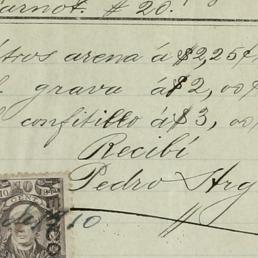 arnot. # 20.
tros arena á $2,25¢
grava á $2,00¢
confitillo á $3,00
Recibí
Pedro Arg
10 CENT
10